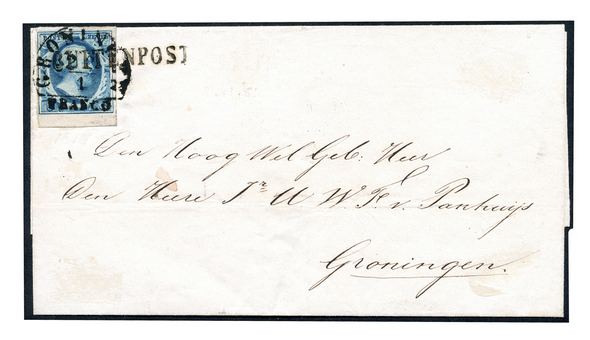 GRONINGEN
BUITENPOST
1
FRANCO
Den Hoog Wel Geb: Heer
Den Heere Jr. U W. F. v. Panhuijs
Groningen.